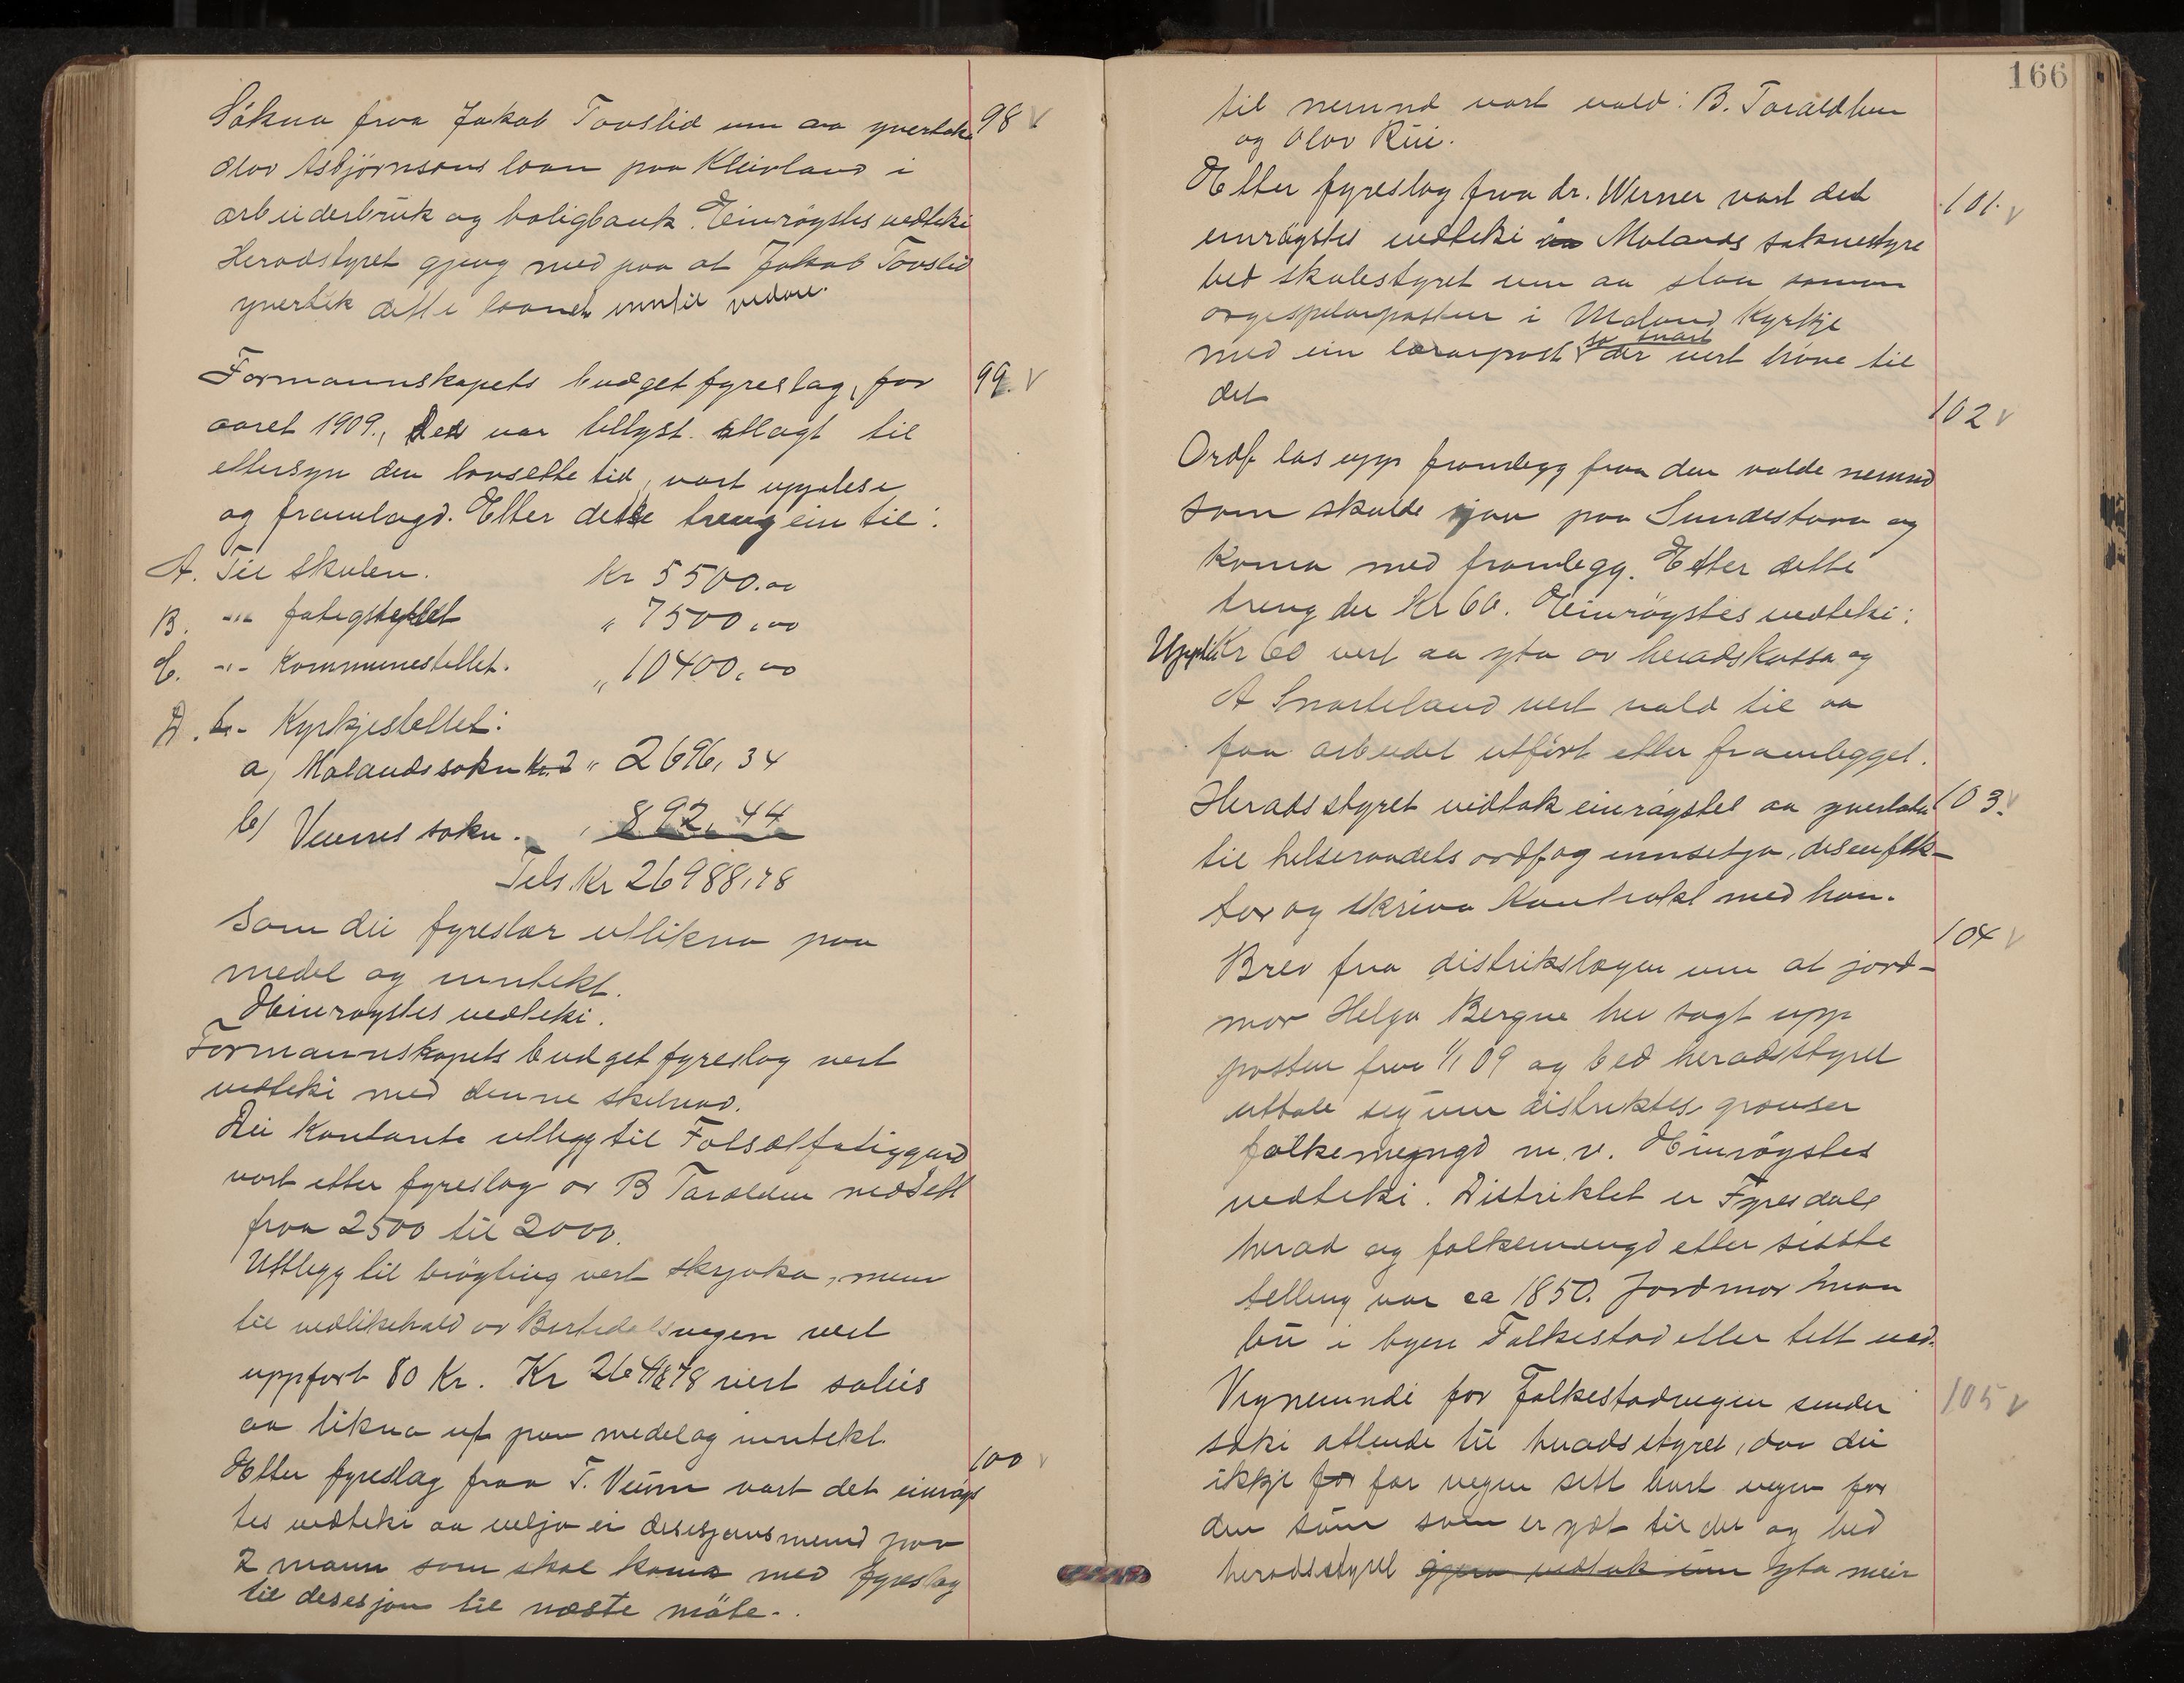 Sökna fraa Jakob Tovslid um aa yvertaka 98
Olov Asbjörnsons laan paa Kleivland i
arbeiderbruk og boligbank. Einröystes vedteki
Heradstyret gjeng med paa at Jakob Tovslid
yvertek dette laanet inntil vidare.
Formannskapets budget fyreslag, for 99.
aaret 1909, Det var tillyst utlagt til
ettersyn den lovsette tid, vart upplese
og framlagd. Etter dette treng ein til:
A. Til Skulen. Kr 5500.00
B. -"- fatigstellet " 7500,00
C. -"- Kommunestellet. " 10400,00
D. -"- Kyrkjestellet:
a, Molands sokn " 2696,34
b/ Veums sokn. " 892,44
Tels. Kr 26988,78
som dei fyreslær utlikna paa
medel og inntekt.
Einröystes vedteki.
Formannskapets budget fyreslag vert
vedteki med denne skilnad.
Dei Kontante utlegg til Folsælfatiggard
vart etter fyreslag av B Taraldlien nedsett
fraa 2500 til 2000.
Utlegg til bröyting vert strjoka, men
til vedlikehald av Birtedalsvegen vert
uppfört 80 Kr. Kr vert soleis
aa likna ut paa medel og inntekt.
100
Etter fyreslag fraa T. Veum vart det einröys
tes vedteki aa velja ei desisjonsnemnd paa
2 mann som skal koma med fyreslag
til desisjon til næste möte.
166
til nemnd vart vald: B. Taraldlien
og Olov Rui.
Etter fyreslag fraa dr. Werner vart det 101.
einröystes vedteki Molands soknestyre
bed skulestyret um aa slaa saman
orgelspelarposten i Moland Kyrkje
med ein lærarpost so snart der vert höve til
det
102
Ordf. las upp framlegg fraa den valde nemnd
som skulde sjaa paa Sundestova og
koma med framlegg. Etter dette
treng der Kr 60. Einröystes vedteki:
Upptil Kr 60 vert aa yta av heradskassa og
A Snarteland vert vald til aa
faa arbeidet utfört etter framlegget.
Heradsstyret vidtok einröystes aa yverlata 103.
til helseraadets ordf. og innsetja, desinfek-
tor og skriva Kontrakt med han.
104
Brev fraa distrikslægen um at jord-
mor Helga Bergne hev sagt upp
posten fraa 1/1 09 og bed heradsstyret
uttale seg um distriktes grenser
folkemengd m.v. Einröystes
vedteki. Distriktet er Fyresdals
herad og folkemengd etter sidste
telling var ca 1850. Jordmor maa
bu i byen Folkestad eller tett ved.
Vegnemndi for Folkestadvegen sender 105
söki attende til heradsstyret, daa dei
ikkje for far vegen sett burt vegen for
den sum som er gjet til det og bed
heradsstyret gjera vedtak um yta meir